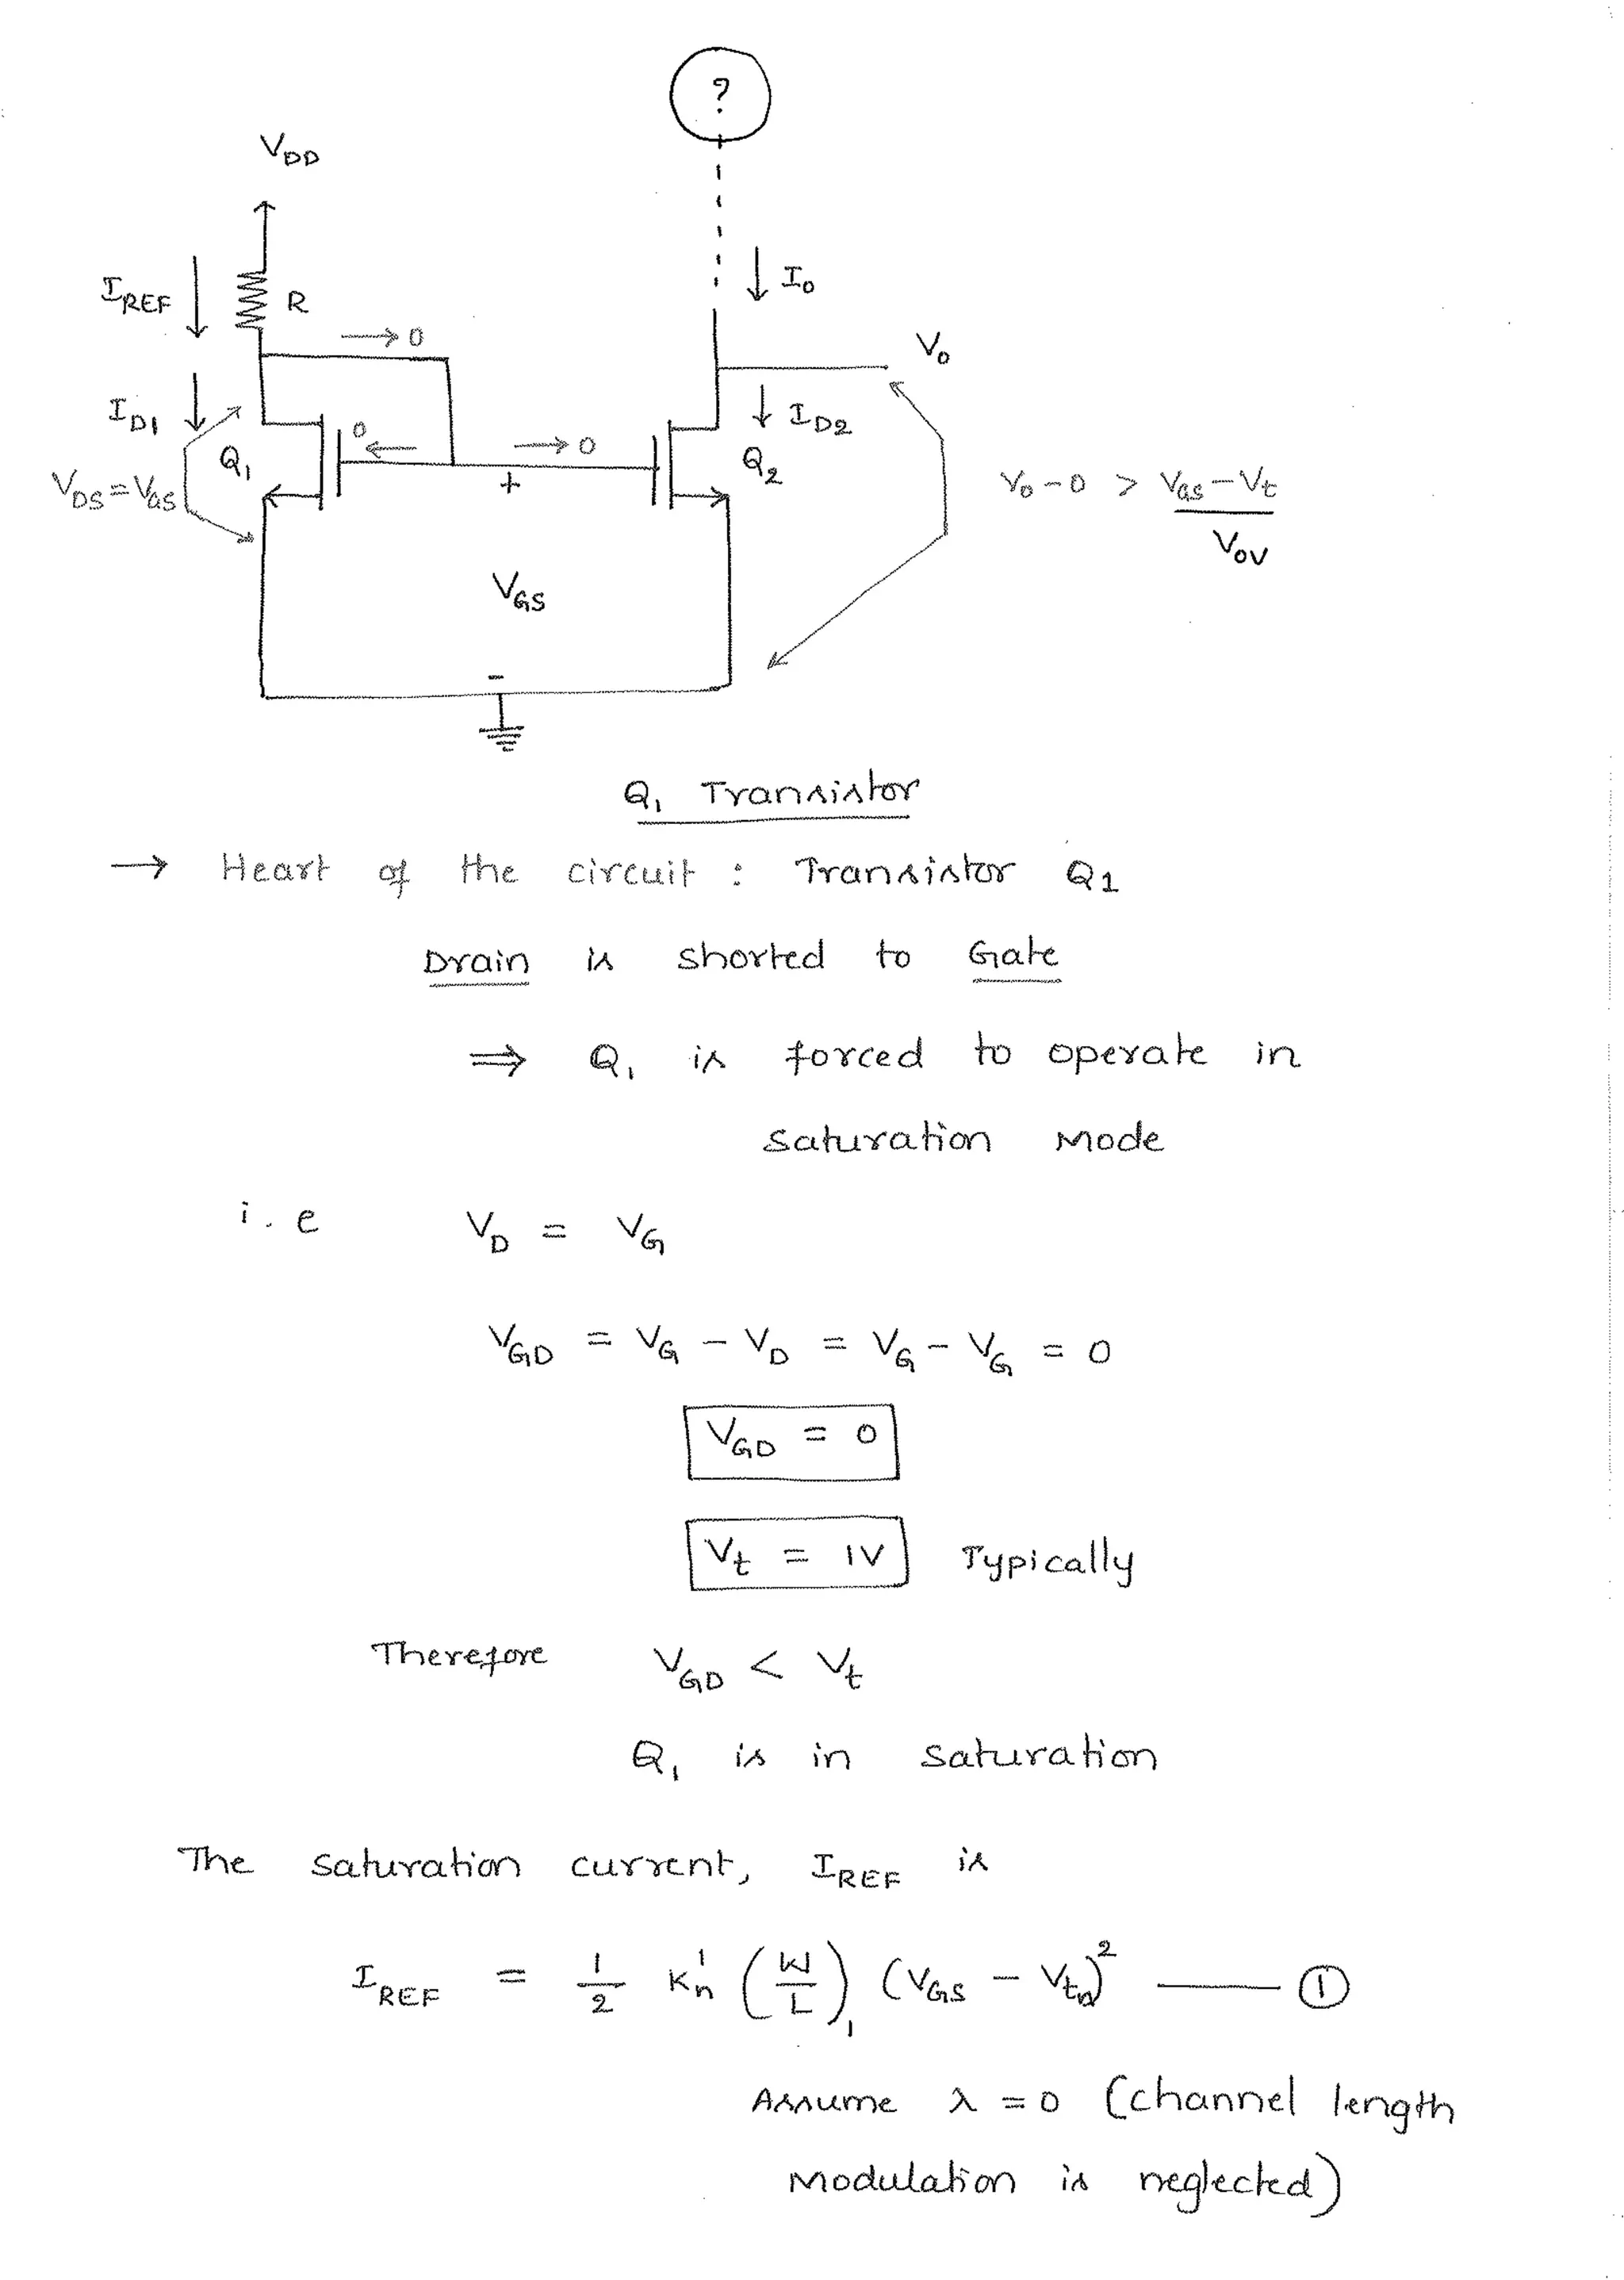 ?
V_DD
I_REF ↓ R
→ 0
↓ I_0
V_0
I_D1 ↓
0 ←
→ 0
↓ I_D2
Q_1
Q_2
V_DS = V_GS
+
V_0 - 0 > V_GS - V_t
V_OV
V_GS
-
Q_1 Transistor
→ Heart of the circuit : Transistor Q1
Drain is shorted to Gate
⇒ Q_1 is forced to operate in
saturation Mode
i.e V_D = V_G
V_GD = V_G - V_D = V_G - V_G = 0
V_GD = 0
V_t = 1V Typically
Therefore V_GD < V_t
Q_1 is in saturation
The saturation current, I_REF is
I_REF = 1/2 K'_n (W/L)_1 (V_GS - V_tn)^2 —— ①
Assume λ = 0 (channel length
Modulation is neglected)